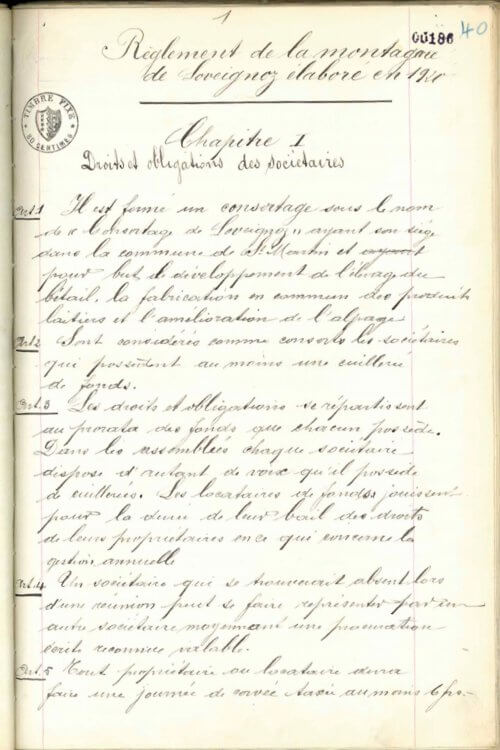 1
00186 40
Règlement de la montagne
de Loveignoz élaboré en 1920
TIMBRE FIXE
50 CENTIMES
Chapitre I
Droits et obligations des sociétaires
Art. 1 Il est formé un consortage sous le nom
de « Consortage de Loveignoz » ayant son siège
dans la commune de St Martin et ayant
pour but le développement de l'élevage du
bétail, la fabrication en commun des produits
laitiers et l'amélioration de l'alpage
Art. 2 Sont considérés comme consorts les sociétaires
qui possèdent au moins une cuillerée
de fonds.
Art. 3 Les droits et obligations se répartissent
au prorata des fonds que chacun possède.
Dans les assemblées chaque sociétaire
dispose d'autant de voix qu'il possède
de cuillerées. Les locataires de fonds jouissent
pour la durée de leur bail des droits
de leurs propriétaires en ce qui concerne la
gestion annuelle
Art. 4 Un sociétaire qui se trouverait absent lors
d'une réunion peut se faire représenter par un
autre sociétaire moyennant une procuration
écrite reconnue valable.
Art. 5 Tout propriétaire ou locataire devra
faire une journée de corvée taxée au moins 6 frs.